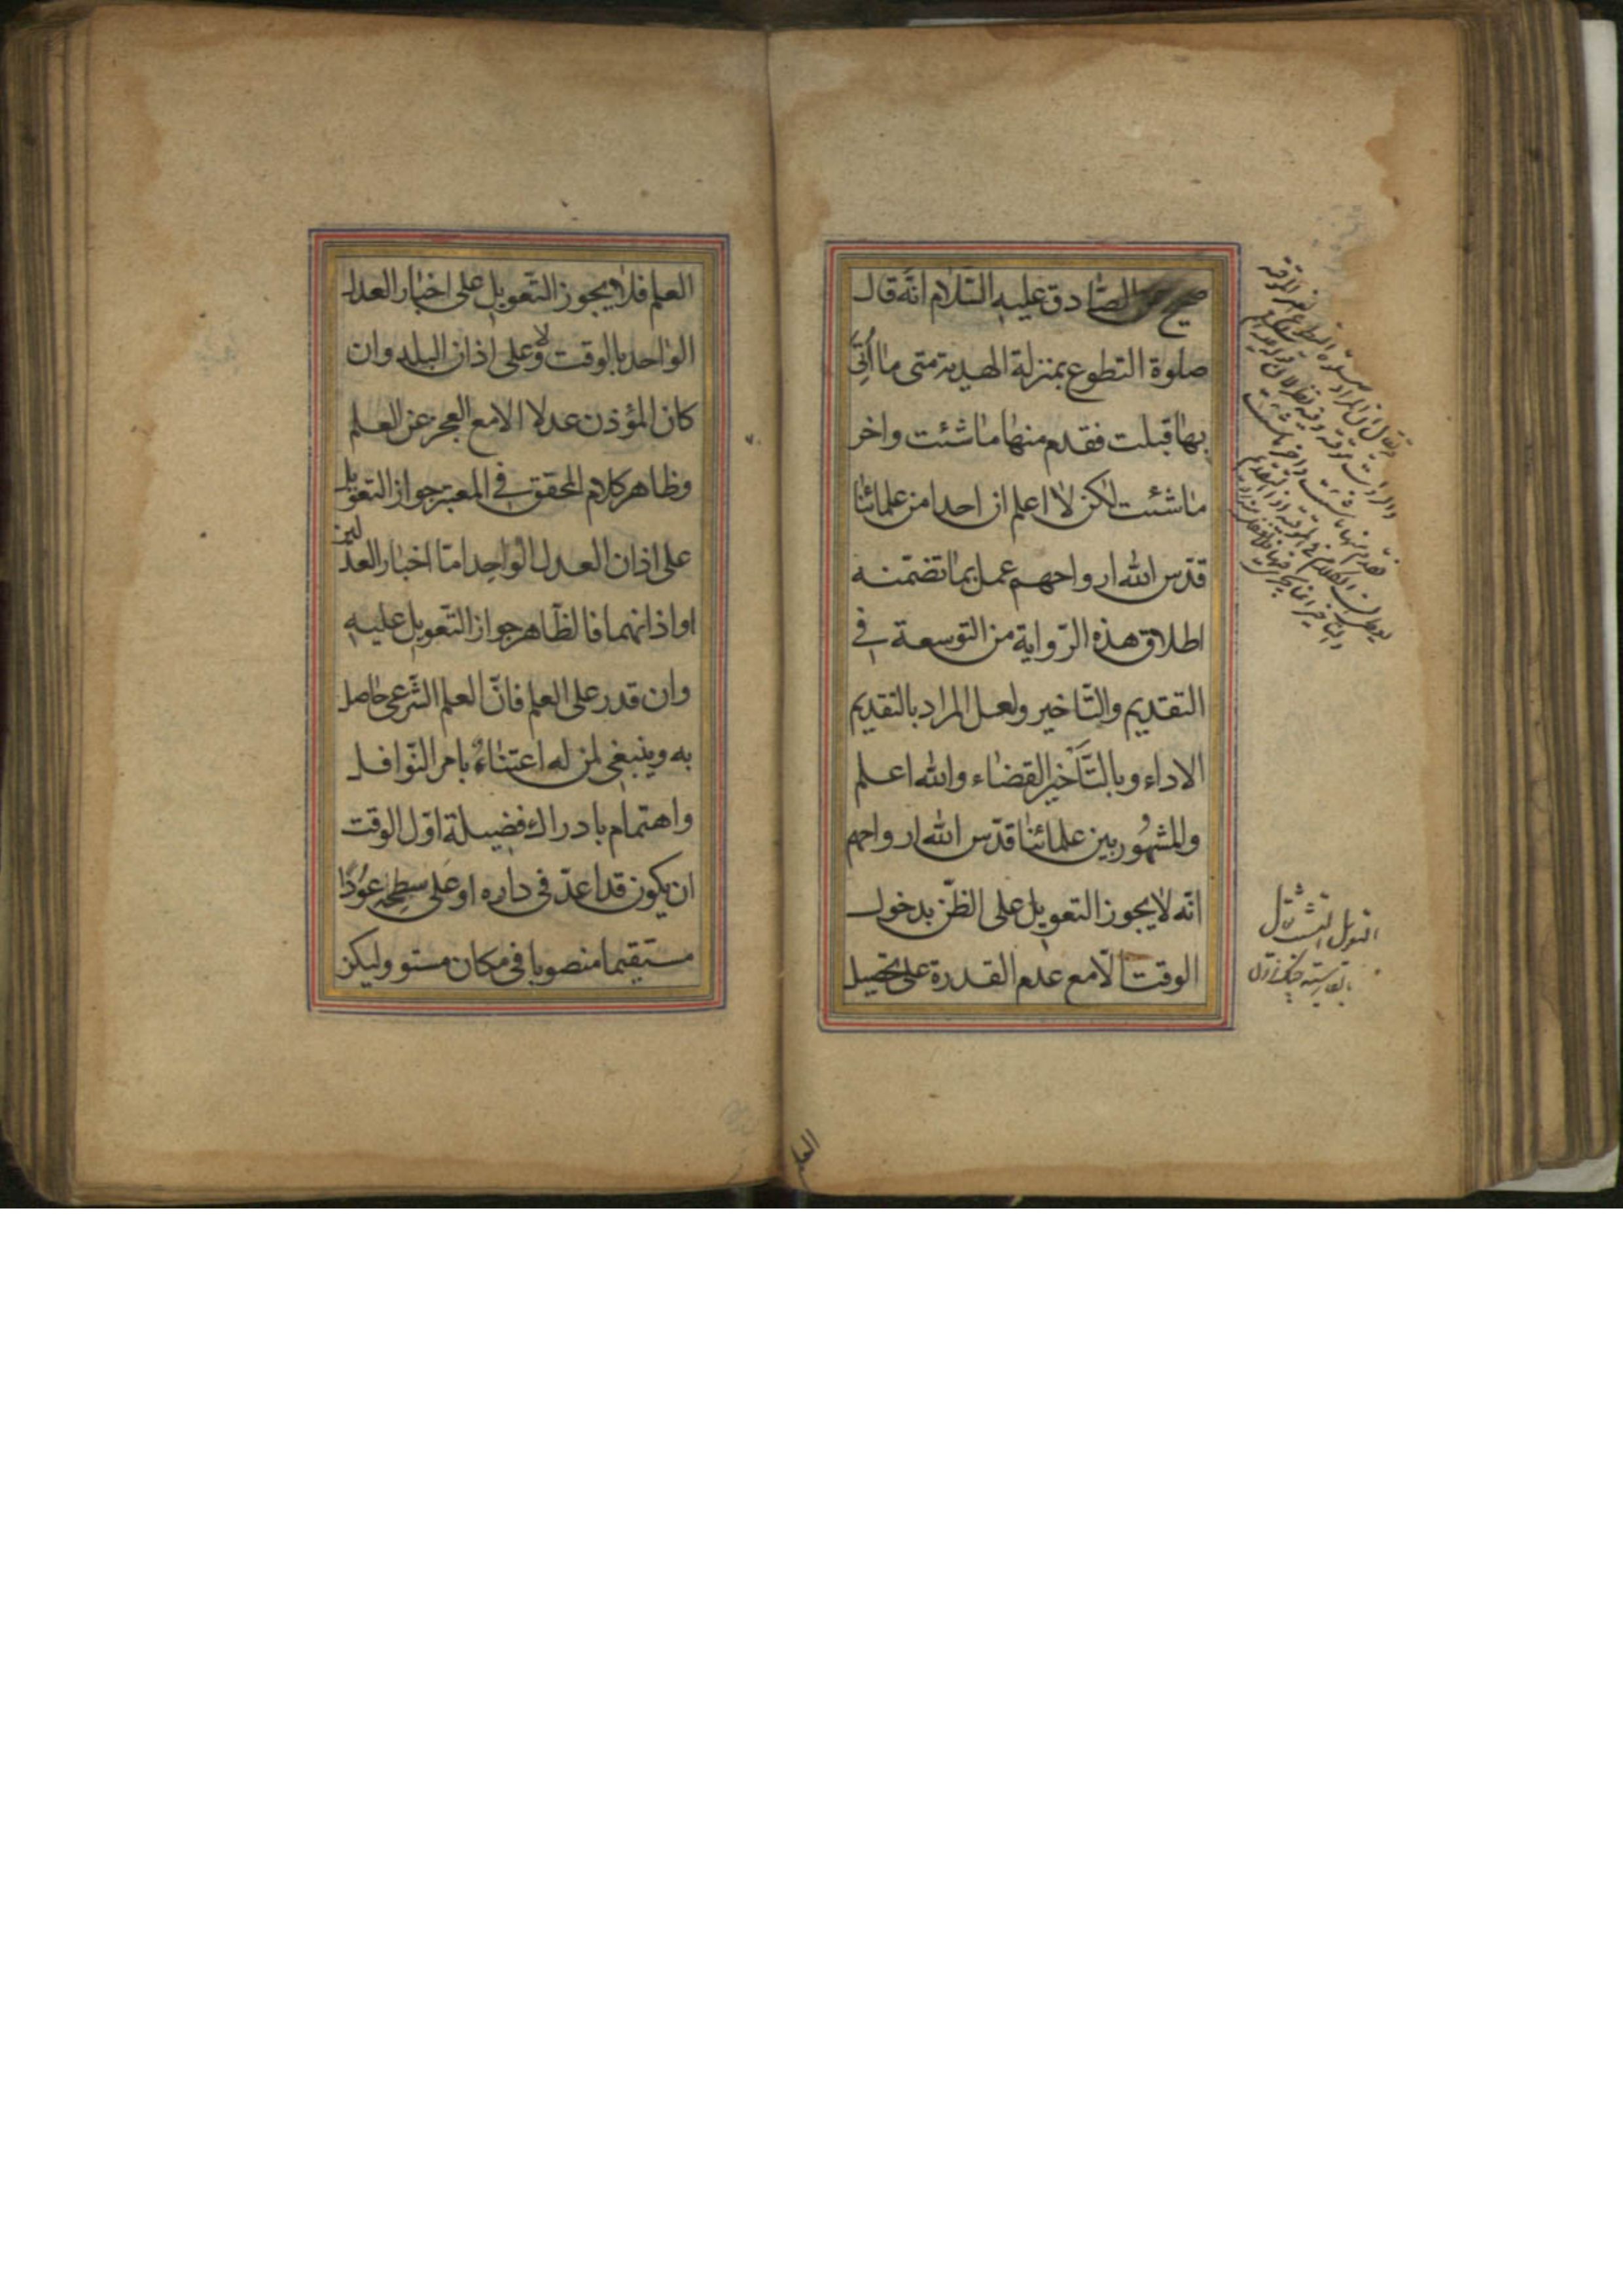 صحيح عن الصّادق عليه السّلام انّه قال
صلوة التطوع بمنزلة الهدية متى ما اُتِىَ
بها قبلت فقدم منها ما شئت واخر
ما شئت لكن لا اعلم ان احدا من علمائنا
قدّس الله ارواحهم عمل بما تضمّنه
اطلاق هذه الرّواية من التوسعة فى
التقديم والتّاخير ولعل المراد بالتقديم
الاداء وبالتَّاخير القضاء والله اعلم
والمشهُور بين علمائنا قدّس الله ارواحهم
انّه لا يجوز التعويل على الظّن بدخول
الوقت الّا مع عدم القدرة على تحصيل
العلم
العلم فلا يجوز التّعويل على اخبار العدل
الواحد بالوقت ولا على اذان البلد وان
كان المؤذن عدلا الا مع العجز عن العلم
وظاهر كلام المحقق فى المعتبر جواز التعويل
على اذان العدل الواحد امّا اخبار العدلين
او اذانهما فالظّاهر جواز التّعويل عليه
وان قدر على العلم فانّ العلم الشّرعى حاصل
به وينبغى لمن له اعتناءٌ بامر النّوافل
واهتمام بادراك فضيلة اوّل الوقت
ان يكون قد اعدّ فى داره او على سطحه عوُدًا
مستقيما منصوبا فى مكان مستو وليكن